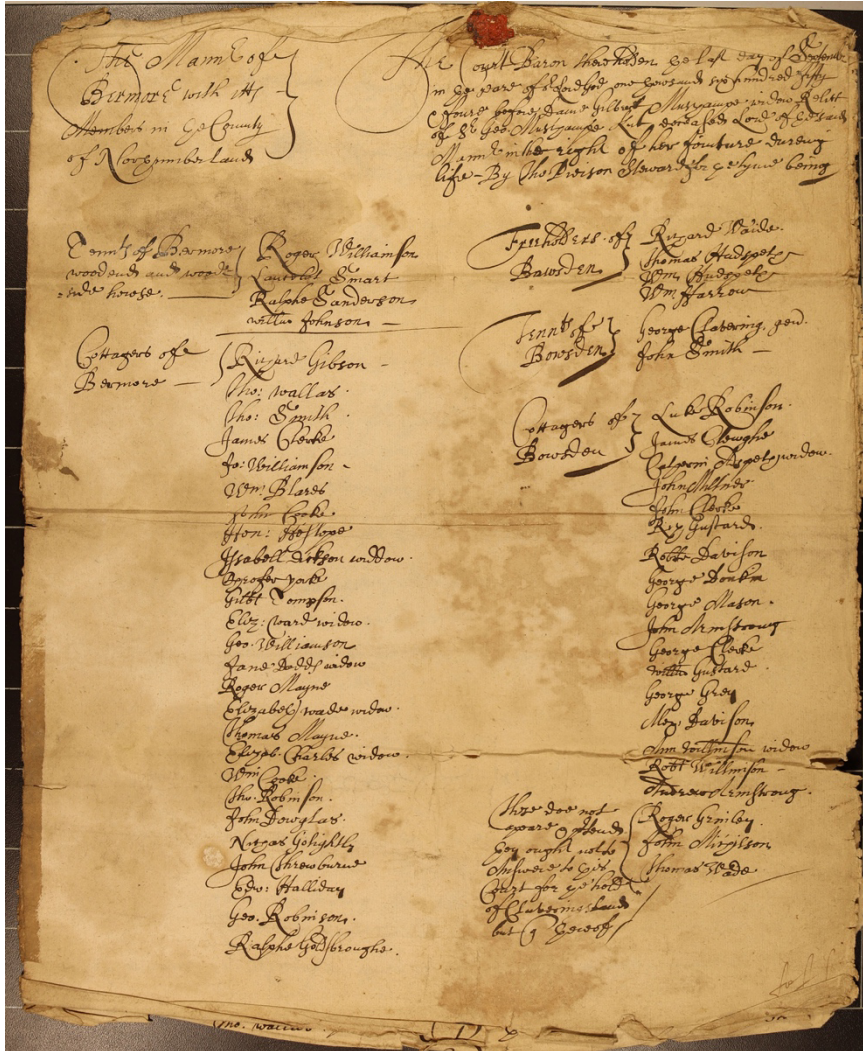 The Mannr of
Barmore with its
Members in ye County
of Northumberland
The Court Baron there holden ye last day of September
in ye yeare of or Lord God one thowsand six hundred fifty
foure before Dame Muschampe widow Relict
of Sr Geo. Muschampe Knt deceased Lord of ye said
Mannr in the right of her Joynture dureing
life - By Tho Steward for ye tyme being
Tennts of Barmore
woodend and woode
side howse.
Roger Williamson
Smart
Ralphe Sanderson
willm Johnson
Cottagers of
Barmore
Richard Gibson
Tho: wallas
Tho: Smith
James Clerke
Jo: Williamson
Wm: Blares
John Cooke
Heslope
Issabell Dickson widdow
yorke
Gilbt Tompson
Eliz: ward widow
Geo. Williamson
Jane Dodds widow
Roger Mayne
Elizabeth wade widow
Thomas Mayne
Elizab: Charles widow
Wm Cooke
Tho: Robinson
John Dowglas
Golightly
John Shrewburne
Edw: Halliday
Geo. Robinson
Ralphe Goldsbroughe
Freeholders of
Bawsden
Richard Waide
Thomas Hudspeth
Wm: Hudspeth
Wm: Harrow
Tennts of
Bowsden
George Clavering, gen.
John Smith
Cottagers of
Bowsden
Luke Robinson
James Cleughe
widow
John Millner
John Clerke
Ry Gustard
Robte Davison
George Donkin
George Mason
John Armstrong
George Clerke
willm Gustard
George Grey
Alex Davison
Ann widow
Robt Willmson
Andrew Armstrong
These doe not
apeare &
they ought not to
Answere to this
Court for ye hold
of Claverings lands
but thereof
Roger Grinley
John
Thomas Wade
Tho. wallas